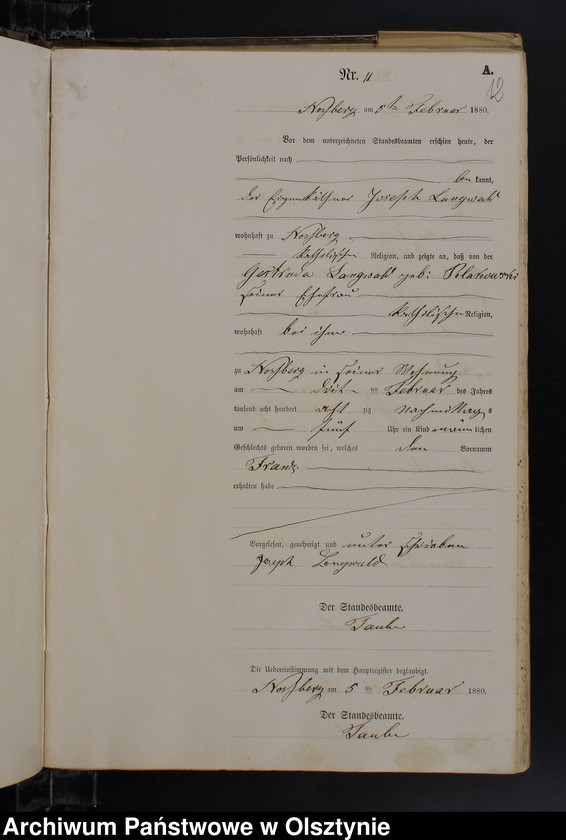 A.
12
Nr. 11
Noßberg am 5ten Februar 1880.
Vor dem unterzeichneten Standesbeamten erschien heute, der
Persönlichkeit nach
bekannt,
der Eigenkäthner Joseph Langwald
wohnhaft zu Noßberg
katholischer Religion, und zeigte an, daß von der
Gertruda Langwald geb: Polakowski
seiner Ehefrau
katholischer Religion,
wohnhaft bei ihm
zu Noßberg in seiner Wohnung
am Februar des Jahres
tausend acht hundert acht zig Nachmittags
um fünf Uhr ein Kind männlichen
Geschlechts geboren worden sei, welches den Vornamen
Franz
erhalten habe
Vorgelesen, genehmigt und unterschrieben
Joseph Langwald
Der Standesbeamte.
Taube
Die Uebereinstimmung mit dem Hauptregister beglaubigt.
Noßberg am 5ten Februar 1880.
Der Standesbeamte.
Taube
Archiwum Państwowe w Olsztynie